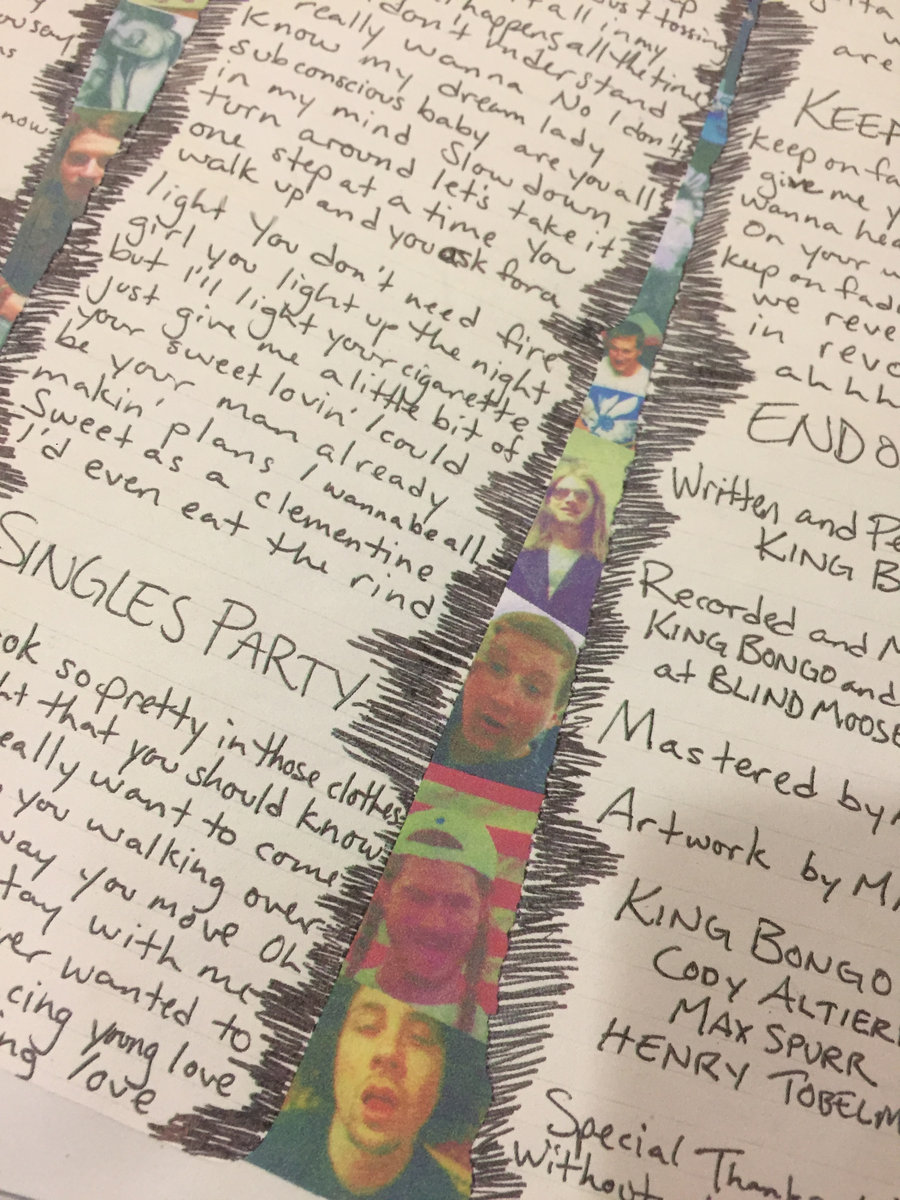 you say
as
now
up
just tossing
it all in my
happens all the time
I don't understand
really wanna No I don't
Know my dream lady
subconscious baby are you all
in my mind Slow down
turn around let's take it
one step at a time You
walk up and you ask for a
light You don't need fire
girl you light up the night
but I'll light your cigarette
just give me a little bit of
your sweet lovin' I could
be your man already
makin' plans I wanna be all
Sweet as a clementine
I'd even eat the rind
SINGLES PARTY
ok so pretty in those clothes
ht that you should know
eally want to come
you walking over
way you move Oh
tay with me
ver wanted to
cing young love
ng love
gotta
w
are
KEEP
keep on fa
give me y
wanna hea
On your w
keep on fad
we reve
in reve
ahhh
END O
Written and Pe
KING B
Recorded and M
KING BONGO and
at BLIND MOOSE
Mastered by
Artwork by M
KING BONGO
CODY ALTIER
MAX SPURR
HENRY TOBELM
Special Thank
Without